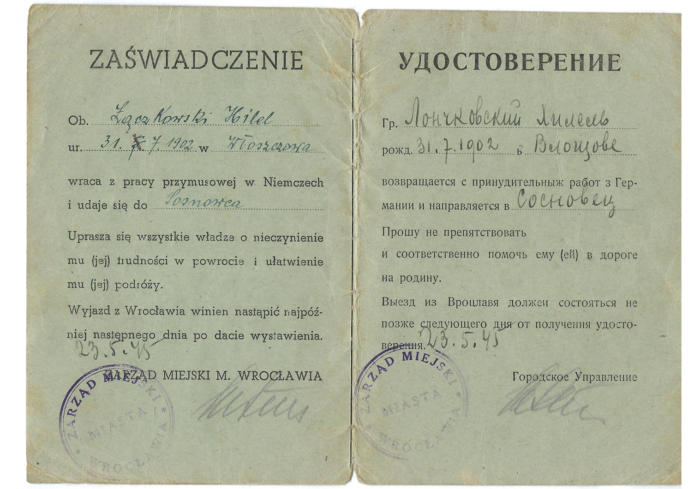 ZAŚWIADCZENIE
Ob. Łączkowski Hilel
ur. 31. 7. 1902 w Włoszczowa
wraca z pracy przymusowej w Niemczech
i udaje się do Sosnowca
Uprasza się wszystkie władze o nieczynienie
mu (jej) trudności w powrocie i ułatwienie
mu (jej) podróży.
Wyjazd z Wrocławia winien nastąpić najpóź-
niej następnego dnia po dacie wystawienia.
23.5.45
ZARZĄD MIEJSKI M. WROCŁAWIA
ZARZĄD MIEJSKI
MIASTA
WROCŁAWIA
УДОСТОВЕРЕНИЕ
Гр. Лончковский Хилель
рожд. 31.7.1902 в Влощове
возвращается с принудительных работ з Гер-
мании и направляется в Сосновец
Прошу не препятствовать
и соответственно помочь ему (ей) в дороге
на родину.
Выезд из Вроцлавя должен состояться не
позже следующего дня от получения удосто-
верения. 23.5.45
Городское Управление
ZARZĄD MIEJSKI
MIASTA
WROCŁAWIA